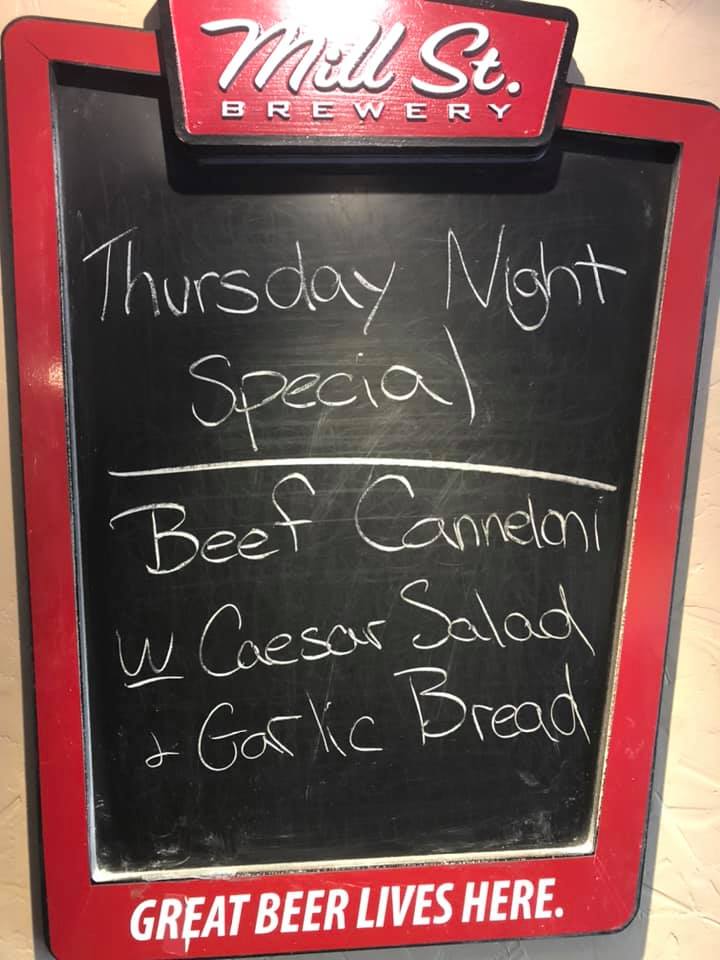 Mill St.
BREWERY
Thursday Night
Special
Beef Canneloni
w Caesar Salad
& Garlic Bread
GREAT BEER LIVES HERE.